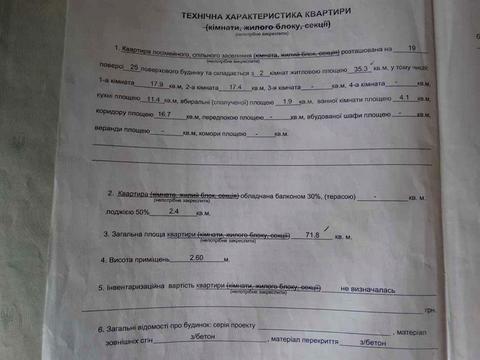 ТЕХНІЧНА ХАРАКТЕРИСТИКА КВАРТИРИ
(кімнати, жилого блоку, секції)
(непотрібне закреслити)
1. Квартира посімейного, спільного заселення (кімната, жилий блок, секція) розташована на 19
(непотрібне закреслити)
поверсі 25 поверхового будинку та складається з 2 кімнат житловою площею 35.3 кв.м, у тому числі:
1-а кімната 17.9 кв.м, 2-а кімната 17.4 кв.м, 3-я кімната - кв.м, 4-а кімната - кв.м,
кухні площею 11.4 кв.м, вбиральні (сполученої) площею 1.9 кв.м, ванної кімнати площею 4.1 кв.м,
коридору площею 16.7 кв.м, передпокою площею - кв.м, вбудованої шафи площею - кв.м,
веранди площею - кв.м, комори площею - кв.м.
2. Квартира (кімната, жилий блок, секція) обладнана балконом 30%, (терасою) - кв. м.
(непотрібне закреслити)
лоджією 50% 2.4 кв.м.
3. Загальна площа квартири (кімнати, жилого блоку, секції) 71.8 кв. м.
(непотрібне закреслити)
4. Висота приміщень 2.60 м.
5. Інвентаризаційна вартість квартири (кімнати, жилого блоку, секції) не визначалась
(непотрібне закреслити)
грн.
6. Загальні відомості про будинок: серія проекту , матеріал
зовнішніх стін з/бетон , матеріал перекриття з/бетон